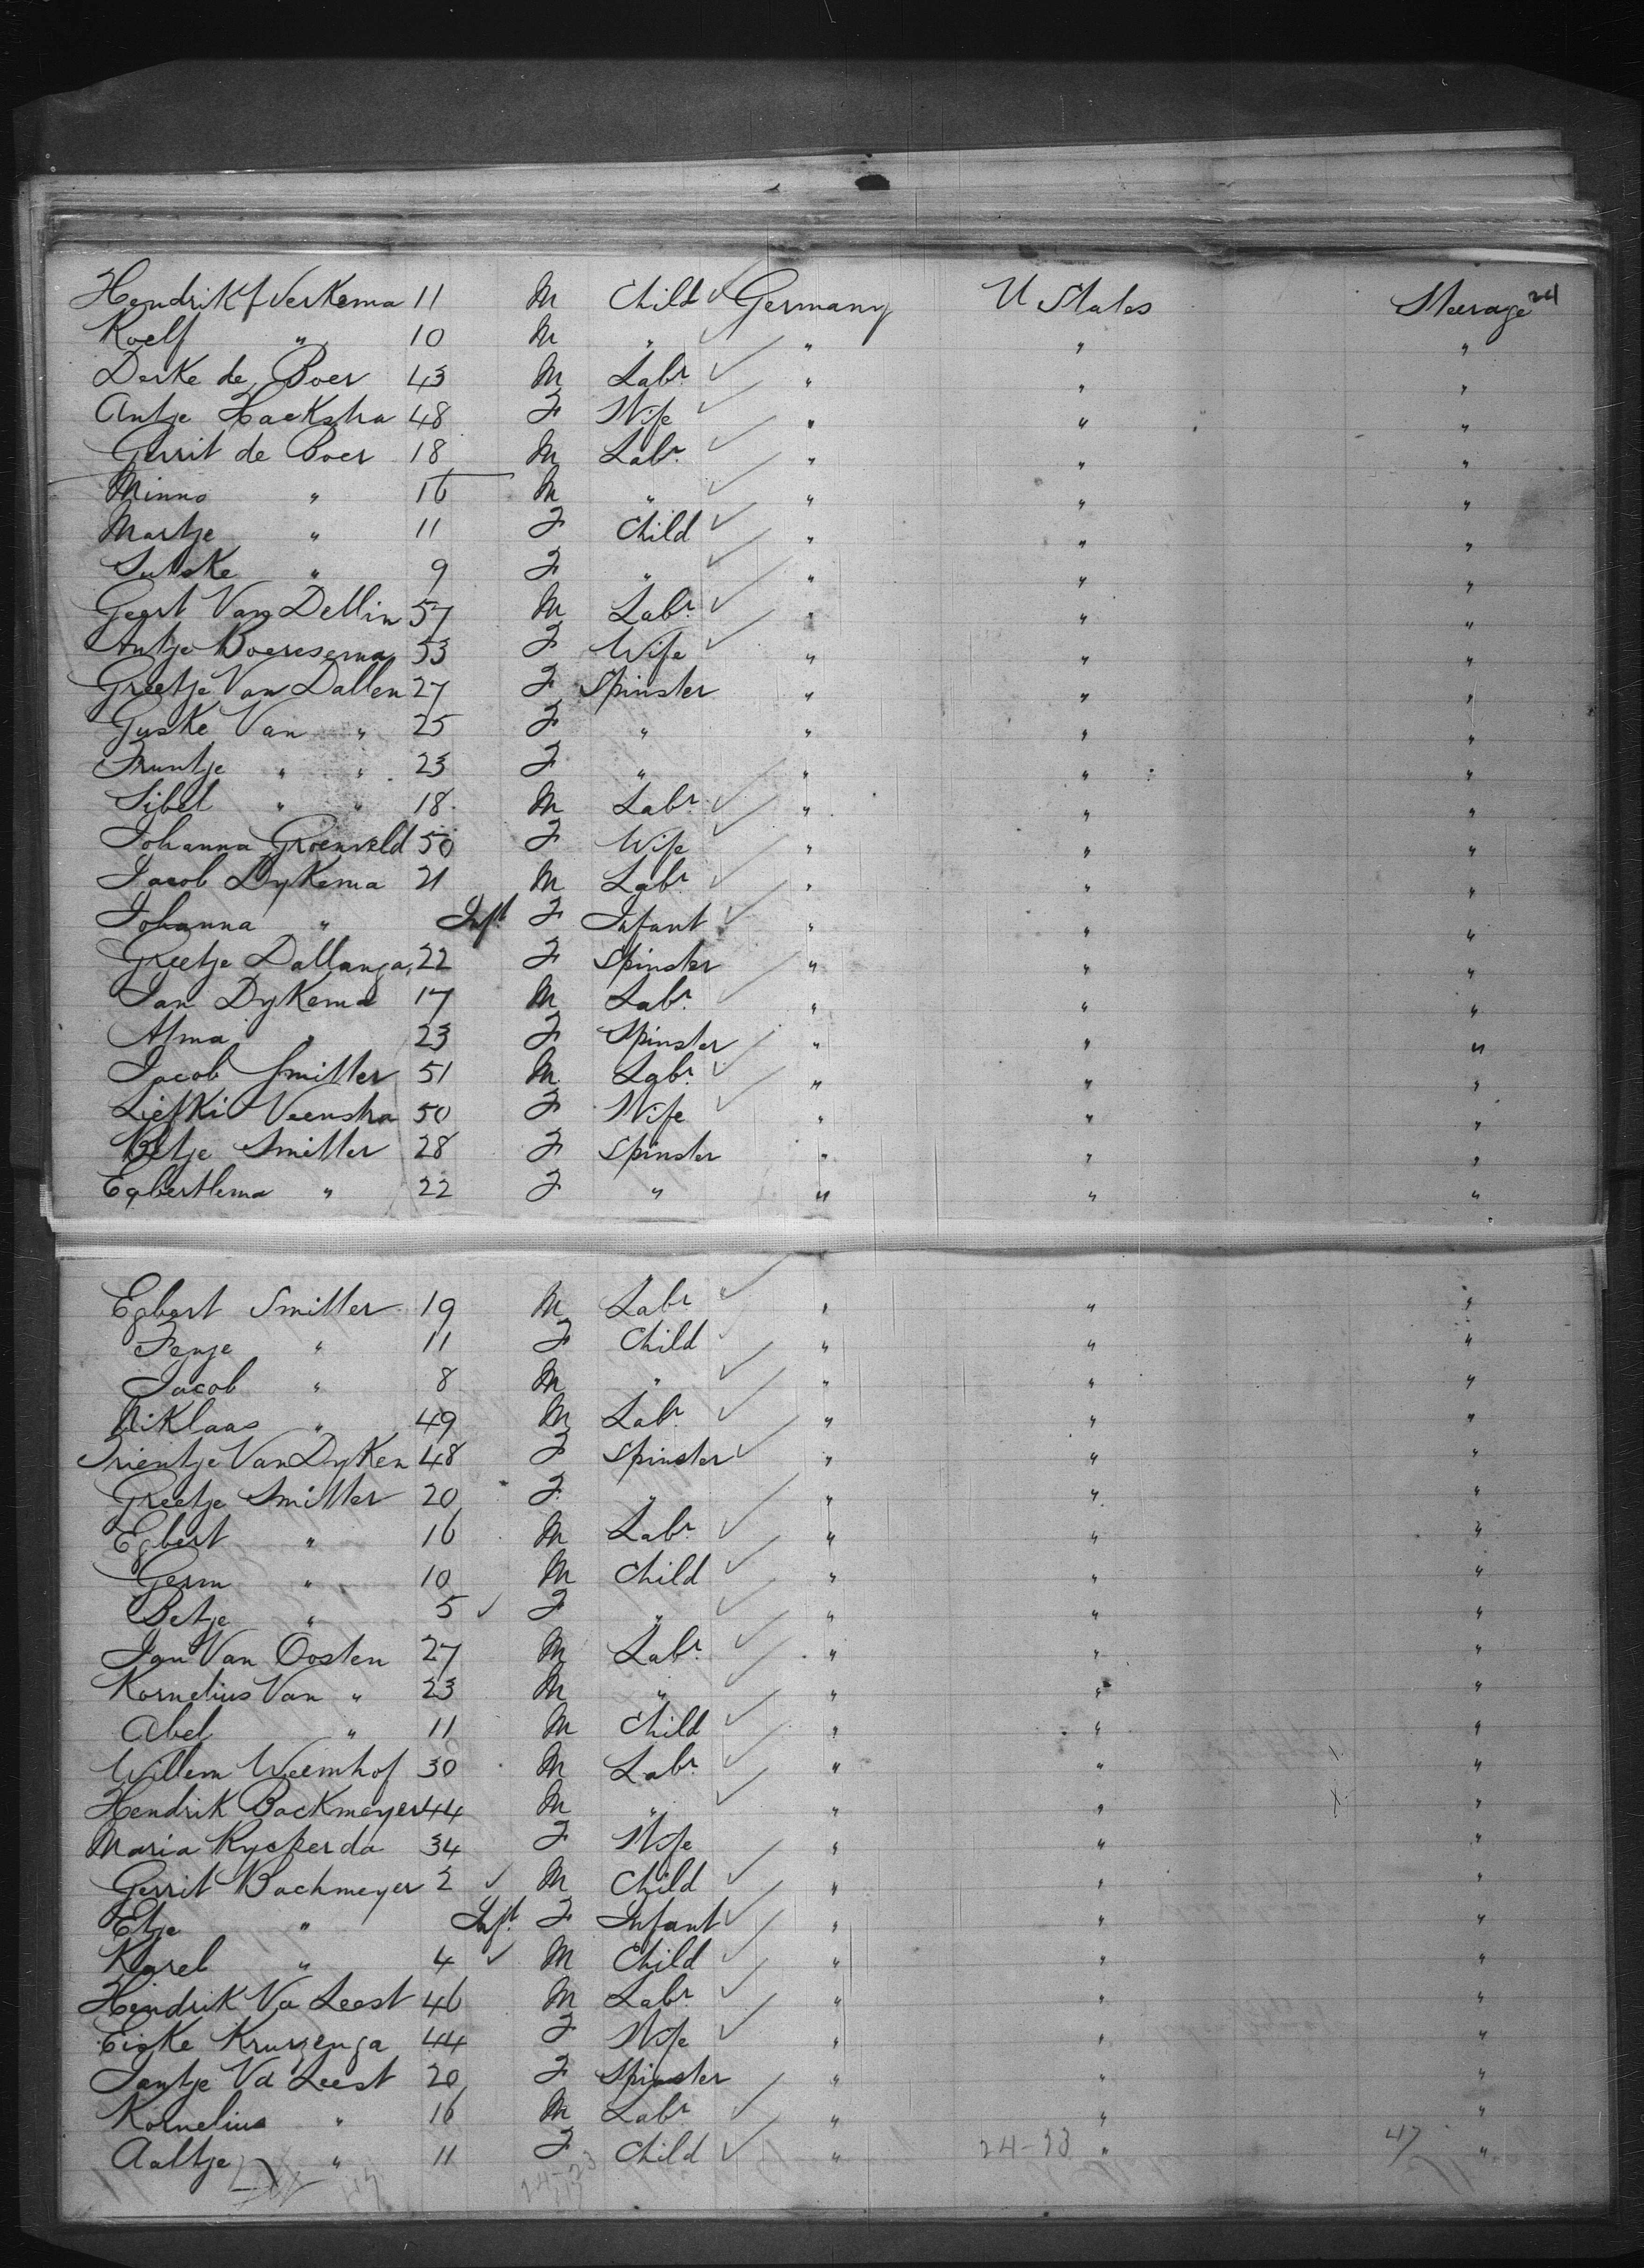 Hendrik f Verkema 11 M Child ✓ Germany U States Steerage 24
Roelf " 10 M " ✓ " " "
Derke de Boer 43 M Labr ✓ " " "
Antje Hoekstra 48 F Wife ✓ " " "
Gerrit de Boer 18 M Labr ✓ " " "
Minno " 16 M " ✓ " " "
Martje " 11 F Child ✓ " " "
Sutske " 9 F " ✓ " " "
Geert Van Dellin 57 M Labr ✓ " " "
Antje Boeresema 53 F Wife ✓ " " "
Greetje Van Dallen 27 F Spinster " " "
Guske Van " 25 F " " " "
Truntje " " 23 F " " " "
Sibel " " 18 M Labr ✓ " " "
Johanna Groenveld 50 F Wife ✓ " " "
Jacob Dykema 21 M Labr ✓ " " "
Johanna " Inft F Infant ✓ " " "
Greetje Dallanga 22 F Spinster " " "
Jan Dykema 17 M Labr ✓ " " "
Alma " 23 F Spinster " " "
Jacob Smitter 51 M Labr ✓ " " "
Liefki Veenstra 50 F Wife ✓ " " "
Betje Smitter 28 F Spinster " " "
Egbertlema " 22 F " " " "
Egbert Smitter 19 M Labr ✓ " " "
Fenje " 11 F Child ✓ " " "
Jacob " 8 M " ✓ " " "
Niklaas " 49 M Labr ✓ " " "
Trientje Van Dyken 48 F Spinster ✓ " " "
Greetje Smitter 20 F " " " "
Egbert " 16 M Labr ✓ " " "
Germ " 10 M Child ✓ " " "
Betje " 5 ✓ F " ✓ " " "
Jan Van Oosten 27 M Labr ✓ " " "
Kornelius Van " 23 M " ✓ " " "
Abel " 11 M Child ✓ " " "
Willem Weemhof 30 M Labr ✓ " " "
Hendrik Backmeyer 44 M " ✓ " " "
Maria Rycperda 34 F Wife " " "
Gerrit Bachmeyer 2 ✓ M Child ✓ " " "
Etje " Inft F Infant ✓ " " "
Karel " 4 ✓ M Child ✓ " " "
Hendrik Va Leest 46 M Labr ✓ " " "
Eiske Kruizenga 44 F Wife ✓ " " "
Jantje Vd Leest 20 F Spinster " " "
Kornelius " 16 M Labr ✓ " " "
Aaltje " 11 F Child ✓ " 24-23 " 47 "
24-23